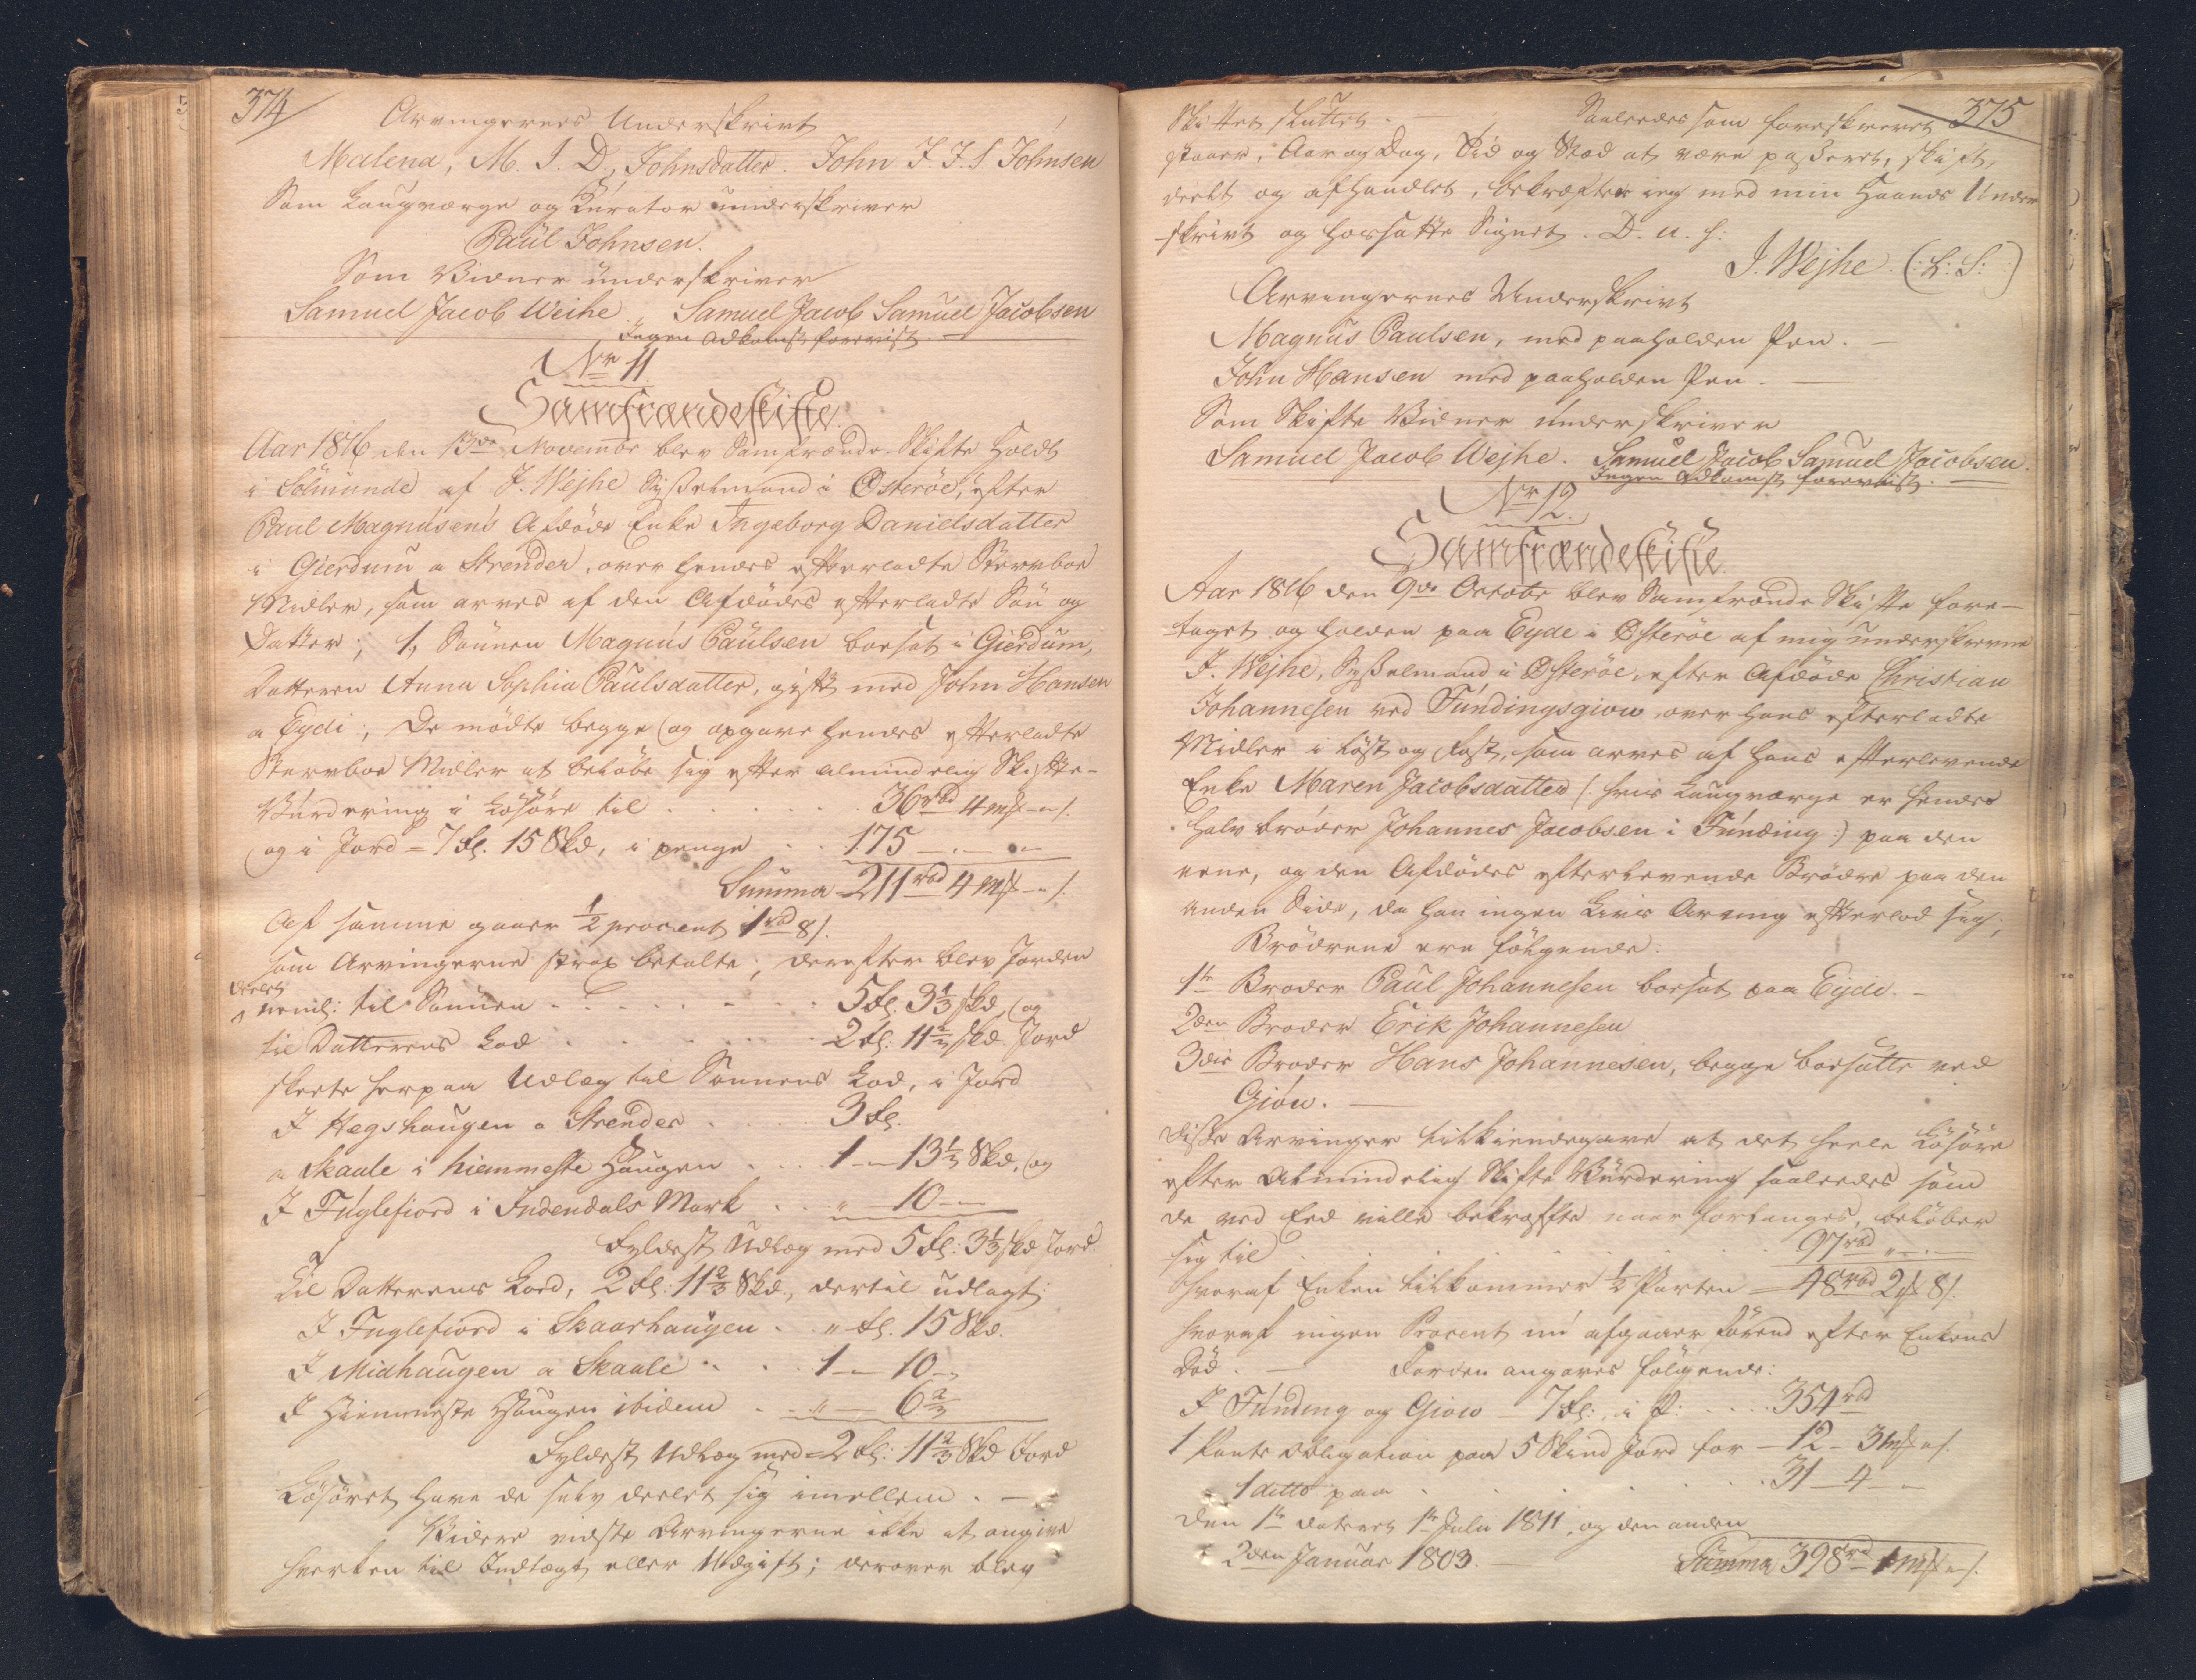 374
Arvingernes Underskrivt
Malena, M. I. D., Johnsdatter. John J. J. S. Johnsen
Som Laugværge og Kurator underskriver
Paul Johnsen.
Som Vidner underskriver
Samuel Jacob Weihe. Samuel Jacob Samuel Jacobsen
Ingen Adkomst forevist.
Nr 11.
Samfrændeskifte.
Aar 1816 den 13de Novembr blev Samfrænde-Skifte holdt
i Solmunde af J. Wejhe Sysselmand i Østerøe, efter
Paul Magnusen's Afdøde Enke Ingeborg Danielsdatter
i Gierdum a Strender, over hendes efterladte Stervboe
Midler, som arves af den Afdødes efterladte Søn og
Datter; 1, Sønnen Magnus Paulsen boesat i Gierdum,
Datteren Anna Sophia Paulsdatter, gift med John Hansen
a Eydi; De mødte begge og opgave hendes efterladte
Stervboe Midler at beløbe sig efter almindelig Skifte-
Vurdering i Løsøre til . . . 36rbd 4 mk - " s.
og i Jord = 7 Fl. 15 Skd, i penge . . 175 - " - " -
Summa 211rbd 4 mk - " s.
Af samme gaaer 1/2 procent 1rbd 8 s.
som Arvingerne strax betalte; derefter blev Jorden
deelet
neml: til Sønnen . . . 5 Fl. 3 1/3 skd, og
til Datterens Lod . . . 2 Fl: 11 2/3 skd Jord
skeete herpaa Udlæg til Sønnens Lod, i Jord
I Hegshaugen a Strender . . . 3 Fl.
a Skaale i hiemmeste Haugen . . . 1 - 13 1/3 Skd, og
I Fuglefiord i Indendals Mark . . " - 10 -
Fyldest Udlæg med 5 Fl: 3 1/3 skd Jord.
Til Datterens Lod, 2 Fl: 11 2/3 Skd, dertil udlagt:
I Fuglefiord i Skaarhaugen . . " Fl. 15 Skd.
I Midhaugen a Skaale . . . 1 - 10 -
I Hiemmeste Haugen ibidem . . " - 6 2/3
Fyldest Udlæg med 2 Fl: 11 2/3 Skd Jord
Løsøret have de selv deelet sig imellem. -
Videre vidste Arvingerne ikke at angive
hverken til Indtægt eller Udgift; derover blev
375
Skiftet sluttet. - Saaledes som foreskrevet
staaer, Aar og Dag, Tid og Stæd at være passeret, skift,
deelt og afhandlet, bekræfter ieg med min Haands Under
-skrivt og hossatte Signet. D. u. s:
J. Wejhe (: L: S: )
Arvingernes Underskrivt
Magnus Paulsen, med paaholden Pen. -
John Hansen med paaholden Pen. -
Som Skifte Vidner underskriver
Samuel Jacob Wejhe. Samuel Jacob Samuel Jacobsen.
Ingen Adkomst forevist. -
Nr 12.
Samfrændeskifte.
Aar 1816 den 9de Octobr blev Samfrænde Skifte fore-
taget og holden paa Eyde i Østerøe af mig underskrevne
J. Wejhe, Sysselmand i Østerøe, efter Afdøde Christian
Johannesen ved Fundingsgiow, over hans efterladte
Midler i Løst og Fast, som arves af hans efterlevende
Enke Maren Jacobsdatter (: hvis Laugværge er hendes
halv broder Johannes Jacobsen i Funding :) paa den
eene, og den Afdødes efterlevende Brødre paa den
anden Side, da han ingen Livs Arving efterlod sig;
Brødrene ere følgende:
1te Broder Paul Johannesen boesat paa Eyde. -
2den Broder Erik Johannesen
3die Broder Hans Johannesen, begge boesatte ved
Giou. -
Disse Arvinger tilkiendegave at det heele Løsøre
efter Almindelig Skifte Vurdering saaledes som
de ved Eed ville bekræfte naar forlanges, beløber
sig til . . . 97rbd " - "
hvoraf Enken tilkommer 1/2 Parten - 48rbd 2 mk 8 s.
hvoraf ingen Procent nu afgaaer førend efter Enkens
Død. - Jorden angaves følgende:
I Funding og Giow - 7 Fl:, i P: . . . 354rbd
1 Pante Obligation paa 5 Skind Jord for - 12 - 3 mk " s.
1 ditto paa . . . 31 - 4 - "
Den 1te dateret 1te Julii 1811, og den anden
2den Januar 1803. - Summa 398rbd 1 mk " s.